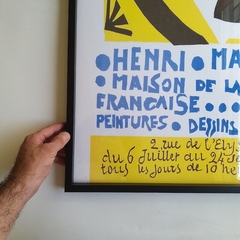 • HENRI • MA
• MAISON DE LA
FRANÇAISE • • •
PEINTURES • DESSINS
2 rue de l'Elys
du 6 Juillet au 24 se
tous les jours de 10 he